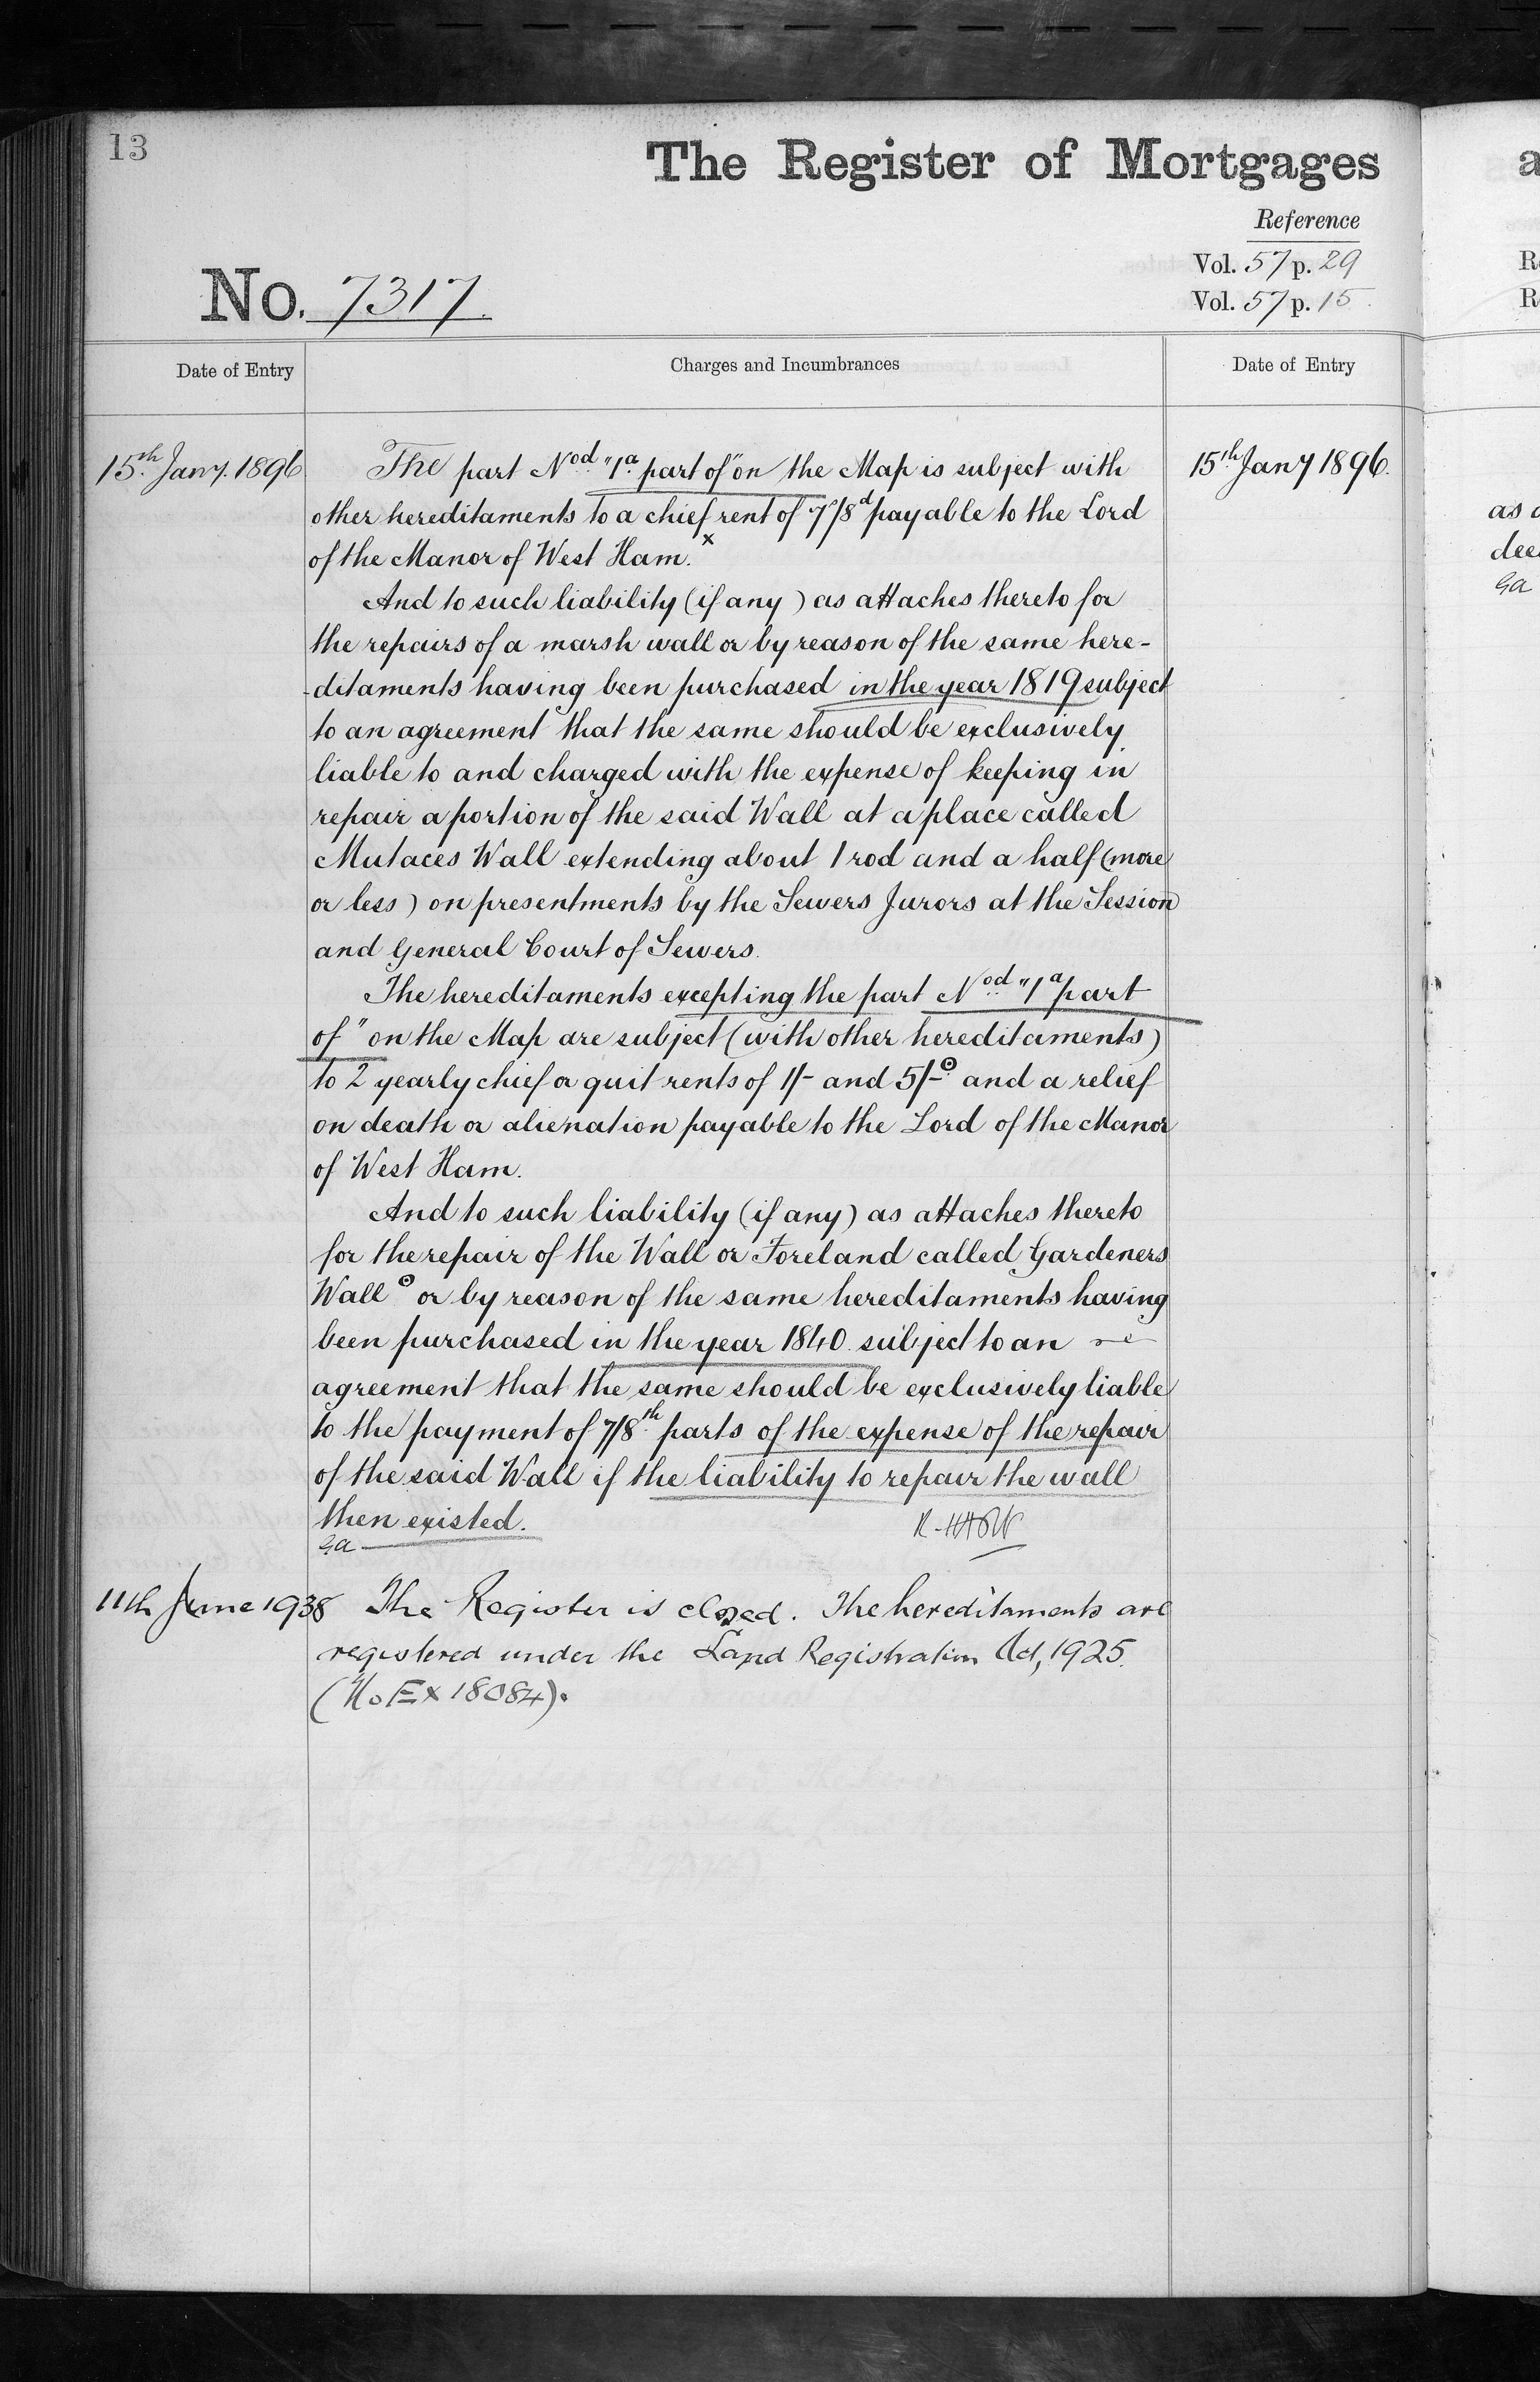 13
The Register of Mortgages
Reference
Vol. 57 p. 29
No. 7317.
Vol. 57 p. 15.
Date of Entry
Charges and Incumbrances
Date of Entry
15th Jany. 1896
The part Nod "1a part of" on the Map is subject with
15th Jany 1896.
other hereditaments to a chief rent of 7/8d payable to the Lord
of the Manor of West Ham. x
And to such liability (if any) as attaches thereto for
the repairs of a marsh wall or by reason of the same here-
-ditaments having been purchased in the year 1819 subject
to an agreement that the same should be exclusively
liable to and charged with the expense of keeping in
repair a portion of the said Wall at a place called
Mutaces Wall extending about 1 rod and a half (more
or less) on presentments by the Sewers Jurors at the Session
and General Court of Sewers.
The hereditaments excepting the part Nod "1a part
of" on the Map are subject (with other hereditaments)
to 2 yearly chief or quit rents of 1/- and 5/- and a relief
on death or alienation payable to the Lord of the Manor
of West Ham.
And to such liability (if any) as attaches thereto
for the repair of the Wall or Foreland called Gardeners
Wall or by reason of the same hereditaments having
been purchased in the year 1840 subject to an
agreement that the same should be exclusively liable
to the payment of 7/8th parts of the expense of the repair
of the said Wall if the liability to repair the wall
then existed.
Ga
11th June 1938 The Register is closed. The hereditaments are
registered under the Land Registration Act, 1925.
(No Ex 18084).
a
R
R
as
dee
Ga